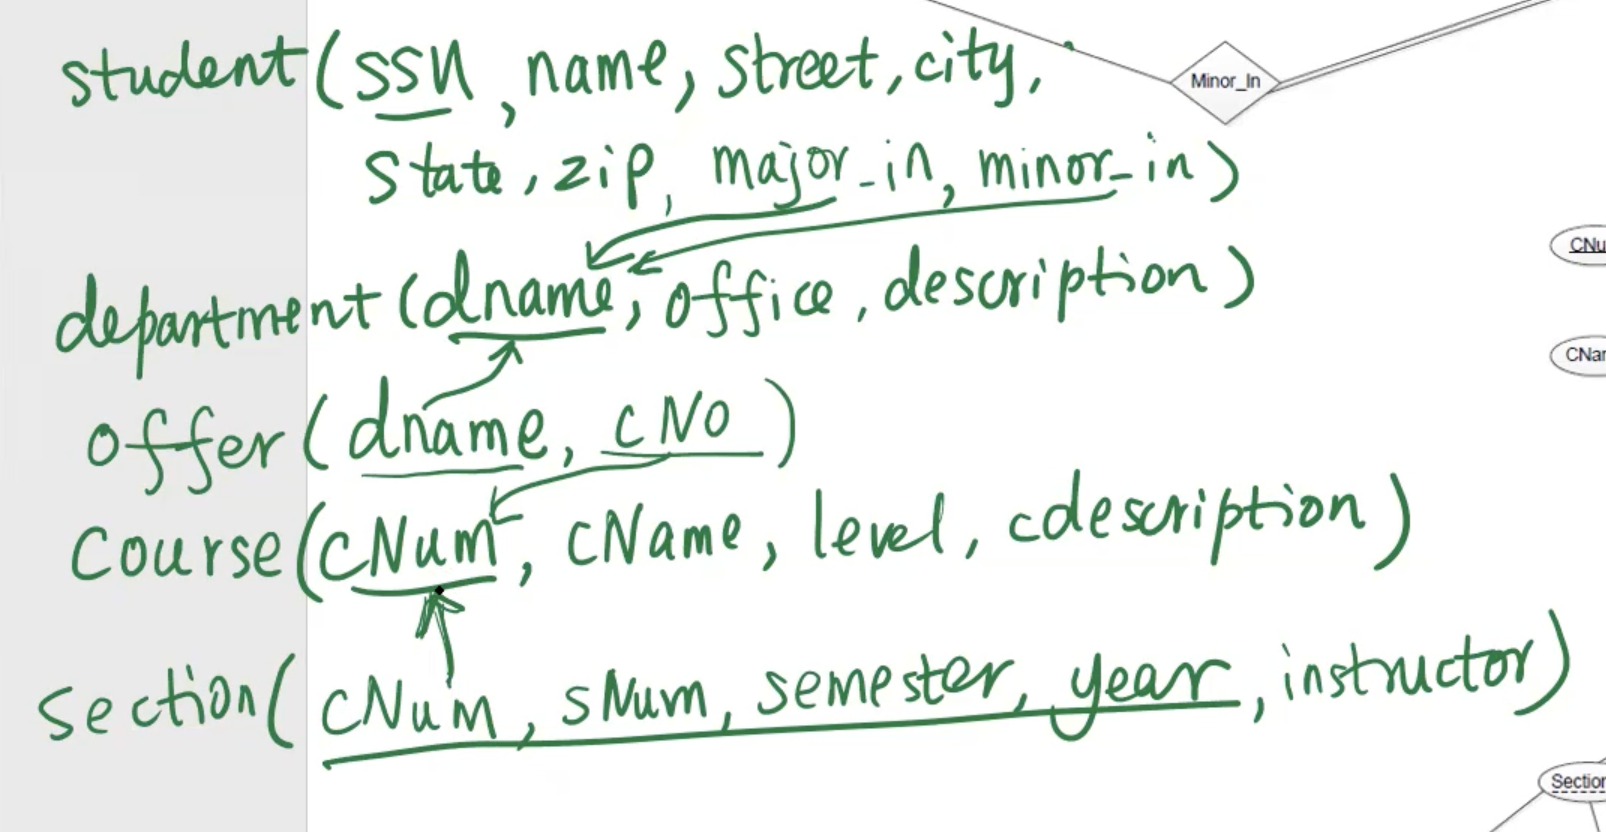 student(ssn, name, street, city,
Minor_In
state, zip, major_in, minor_in)
CNu
department(dname, office, description)
CNar
offer(dname, cNo)
Course(cNum, cName, level, cdescription)
section(cNum, sNum, semester, year, instructor)
Section